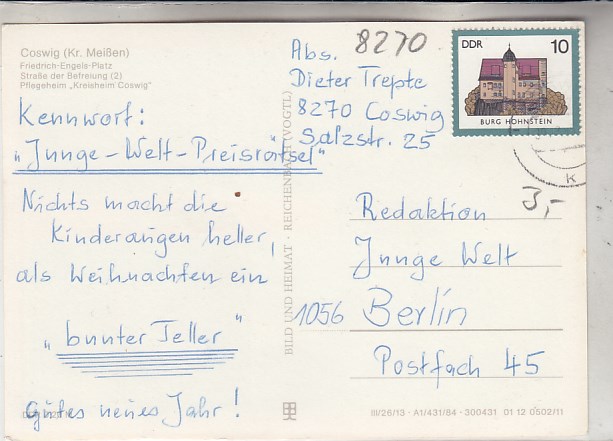 Coswig (Kr. Meißen)
Friedrich-Engels-Platz
Straße der Befreiung (2)
Pflegeheim „Kreisheim Coswig"
Kennwort:
„Junge-Welt-Preisrätsel"
Nichts macht die
Kinderaugen heller,
als Weihnachten ein
„bunter Teller"
Gutes neues Jahr!
BILD UND HEIMAT · REICHENBACH (VOGTL)
8270
Abs.
Dieter Trepte
8270 Coswig
Salzstr. 25
DDR 10
BURG HOHNSTEIN
K
3,-
Redaktion
Junge Welt
1056 Berlin
Postfach 45
III/26/13 · A1/431/84 · 300431 01 12 0502/11